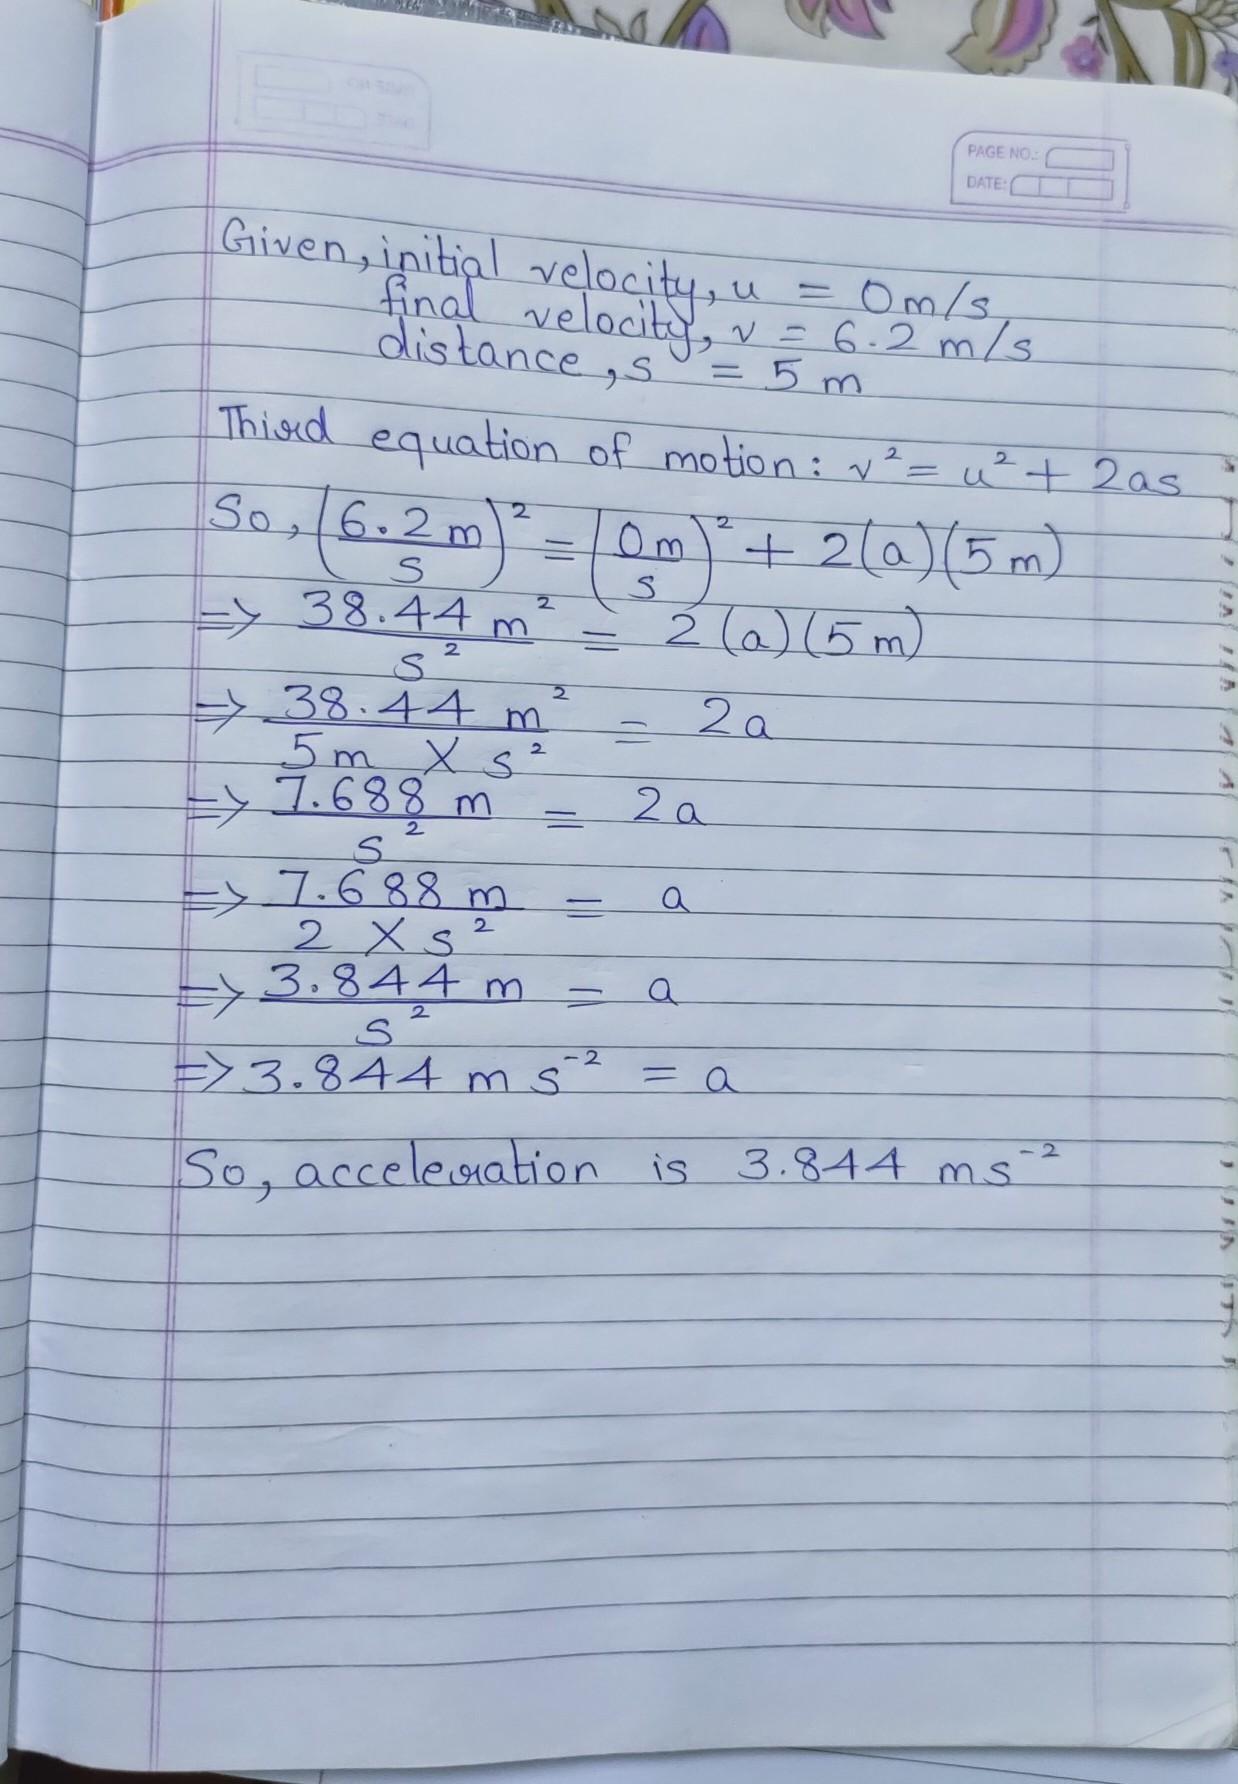 PAGE NO.:
DATE:
Given, initial velocity, u = 0 m/s
final velocity, v = 6.2 m/s
distance, s = 5 m
Third equation of motion: v² = u² + 2as
So, (6.2 m/s)² = (0 m/s)² + 2(a)(5 m)
⇒ 38.44 m²/s² = 2(a)(5 m)
⇒ 38.44 m²/5 m × s² = 2a
⇒ 7.688 m/s² = 2a
⇒ 7.688 m/2 × s² = a
⇒ 3.844 m/s² = a
⇒ 3.844 m s⁻² = a
So, acceleration is 3.844 ms⁻²